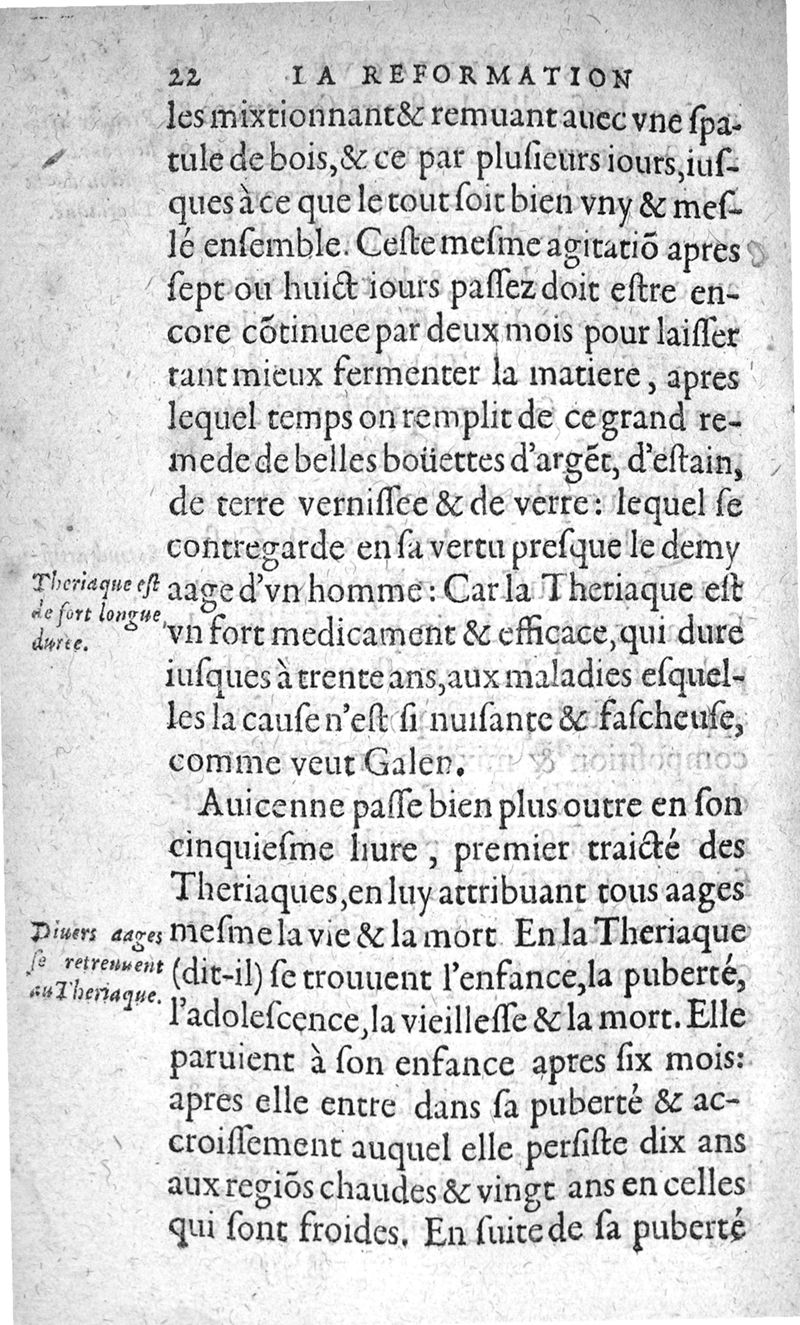 22 LA REFORMATION
les mixtionnant & remuant auec vne ſpa-
tule de bois, & ce par pluſieurs iours, iuſ-
ques à ce que le tout ſoit bien vny & meſ-
lé enſemble. Ceſte meſme agitatiõ apres
ſept ou huict iours paſſez doit eſtre en-
core cõtinuee par deux mois pour laiſſer
tant mieux fermenter la matiere, apres
lequel temps on remplit de ce grand re-
mede de belles boüettes d'argẽt, d'eſtain,
de terre verniſſee & de verre: lequel ſe
contregarde en ſa vertu preſque le demy
aage d'vn homme: Car la Theriaque eſt
vn fort medicament & efficace, qui dure
iuſques à trente ans, aux maladies eſquel-
les la cauſe n'eſt ſi nuiſante & faſcheuſe,
comme veut Galen.
Theriaque eſt
de fort longue
duree.
Auicenne paſſe bien plus outre en ſon
cinquieſme liure, premier traicté des
Theriaques, en luy attribuant tous aages
meſme la vie & la mort. En la Theriaque
(dit-il) ſe trouuent l'enfance, la puberté,
l'adoleſcence, la vieilleſſe & la mort. Elle
paruient à ſon enfance apres ſix mois:
apres elle entre dans ſa puberté & ac-
croiſſement auquel elle perſiſte dix ans
aux regiõs chaudes & vingt ans en celles
qui ſont froides. En ſuite de ſa puberté
Diuers aages
ſe retreuuent
au Theriaque.